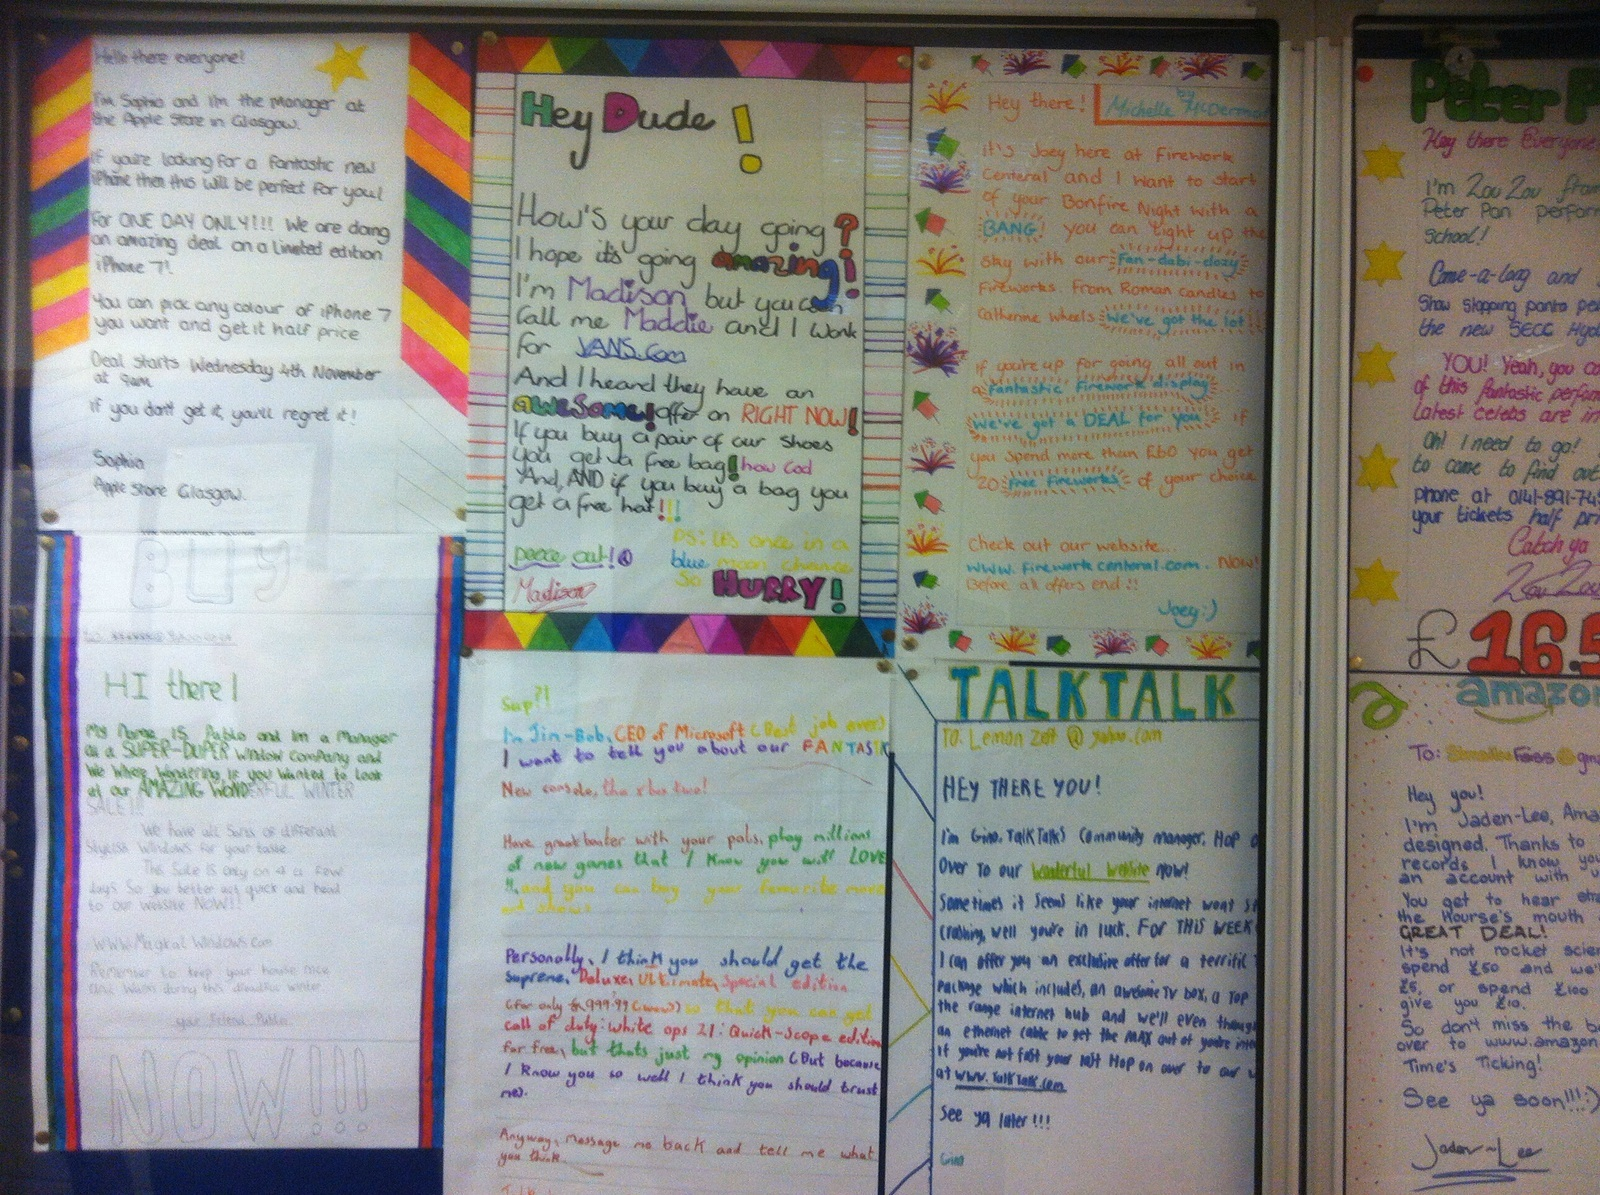 Hello there everyone!
I'm Sophia and I'm the Manager at
the Apple Store in Glasgow.
If you're looking for a fantastic new
iPhone then this will be perfect for you!
For ONE DAY ONLY!!! We are doing
an amazing deal on a Limeted edition
iPhone 7!
You can pick any colour of iPhone 7
you want and get it half price
Deal starts Wednesday 4th November
at 9am
if you don't get it, you'll regret it!
Sophia
Apple Store Glasgow.
BUY
HI there!
My Name IS Pablo and Im a Manager
at a SUPER-DUPER Window Company and
We Where Wondering if you Wanted to Look
at our AMAZING WONDERFUL WINTER
SALE!!!
We have all sorts of different
Stylish Windows for your taste.
The Sale is only on 4 a few
days So you better act quick and head
to our website NOW!!
WWW.Magical Windows.com
Remember to keep your house nice
and warm during this dreadful winter
your Friend Pablo
NOW!!!
Hey Dude!
How's your day going?
I hope it's going amazing!
I'm Madison but you can
Call me Maddie and I work
for VANS.com
And I heard they have an
AWESOME! offer on RIGHT NOW!
If you buy a pair of our shoes
you get a free bag! how cod
And, AND if you buy a bag you
get a free hat!!!
peece out!
PS: it's once in a
blue moon chance
So HURRY!
Madison
Hey there!
by
Michelle McDermo
it's Joey here at Firework
Centeral and I want to start
of your Bonfire Night with a
BANG! you can light up the
sky with our Fan-dabi-dozy
Fireworks. From Roman candles to
Catherine wheels We've got the lot!
if you're up for going all out in
a Fantastic Firework display
We've got a DEAL for you if
you spend more than £60 you get
20 free fireworks of your choice
Check out our website...
www.fireworkcenteral.com. Now!
Before all offers end!!
Joey:)
Sup?!
I'm Jim-Bob, CEO of Microsoft (Best job ever)
I want to tell you about our FANTASTIC
New console, the xbox two!
Have great banter with your pals, play millions
of new games that I know you will LOVE
!!, and you can buy your favourite movies
and shows
Personally, I think you should get the
supreme, Deluxe, Ultimate, Special edition
(for only £1,999.99 (wow)) so that you can get
call of duty: white ops 21: Quick-Scope edition
for free, but thats just my opinion (But because
I know you so well I think you should trust
me).
Anyway, message me back and tell me what
you think.
TALKTALK
TO: Lemon Zest @ yahoo.com
HEY THERE YOU!
I'm Gino, TalkTalks Community manager. HOP
Over to our Wonderful Website now!
Sometimes it seems like your internet wont st
crashing, well you're in luck. FOR THIS WEEK
I can offer you an exclusive offer for a terrific
Package which includes, an awesome TV box, a TOP
the range internet hub and we'll even throw
an ethernet cable to get the MAX out of you're inte
If you're not fast your last Hop on over to our w
at www.TalkTalk.com
See ya later!!!
Gino
Peter P
Hey there Everyone
I'm Zou Zou from
Peter Pan perform
School!
Come-a-long and
Show Slapping panto pe
the new SECC Hyd
YOU! Yeah, you co
of this fantastic perfor
Latest celebs are in
Oh! I need to go!
to come to find out
phone at 0141-891-74
your tickets half pri
Catch ya
Zou Zou
£16.5
amazon
To:
Hey you!
I'm Jaden-Lee, Ama
designed. Thanks to
records I know you
an account with
You get to hear str
the Hourse's mouth
GREAT DEAL!
It's not rocket scien
spend £50 and we'
£5, or spend £100
give you £10.
So don't miss the b
over to www.amazon
Time's Ticking!
See ya soon!!!:)
Jaden-Lee